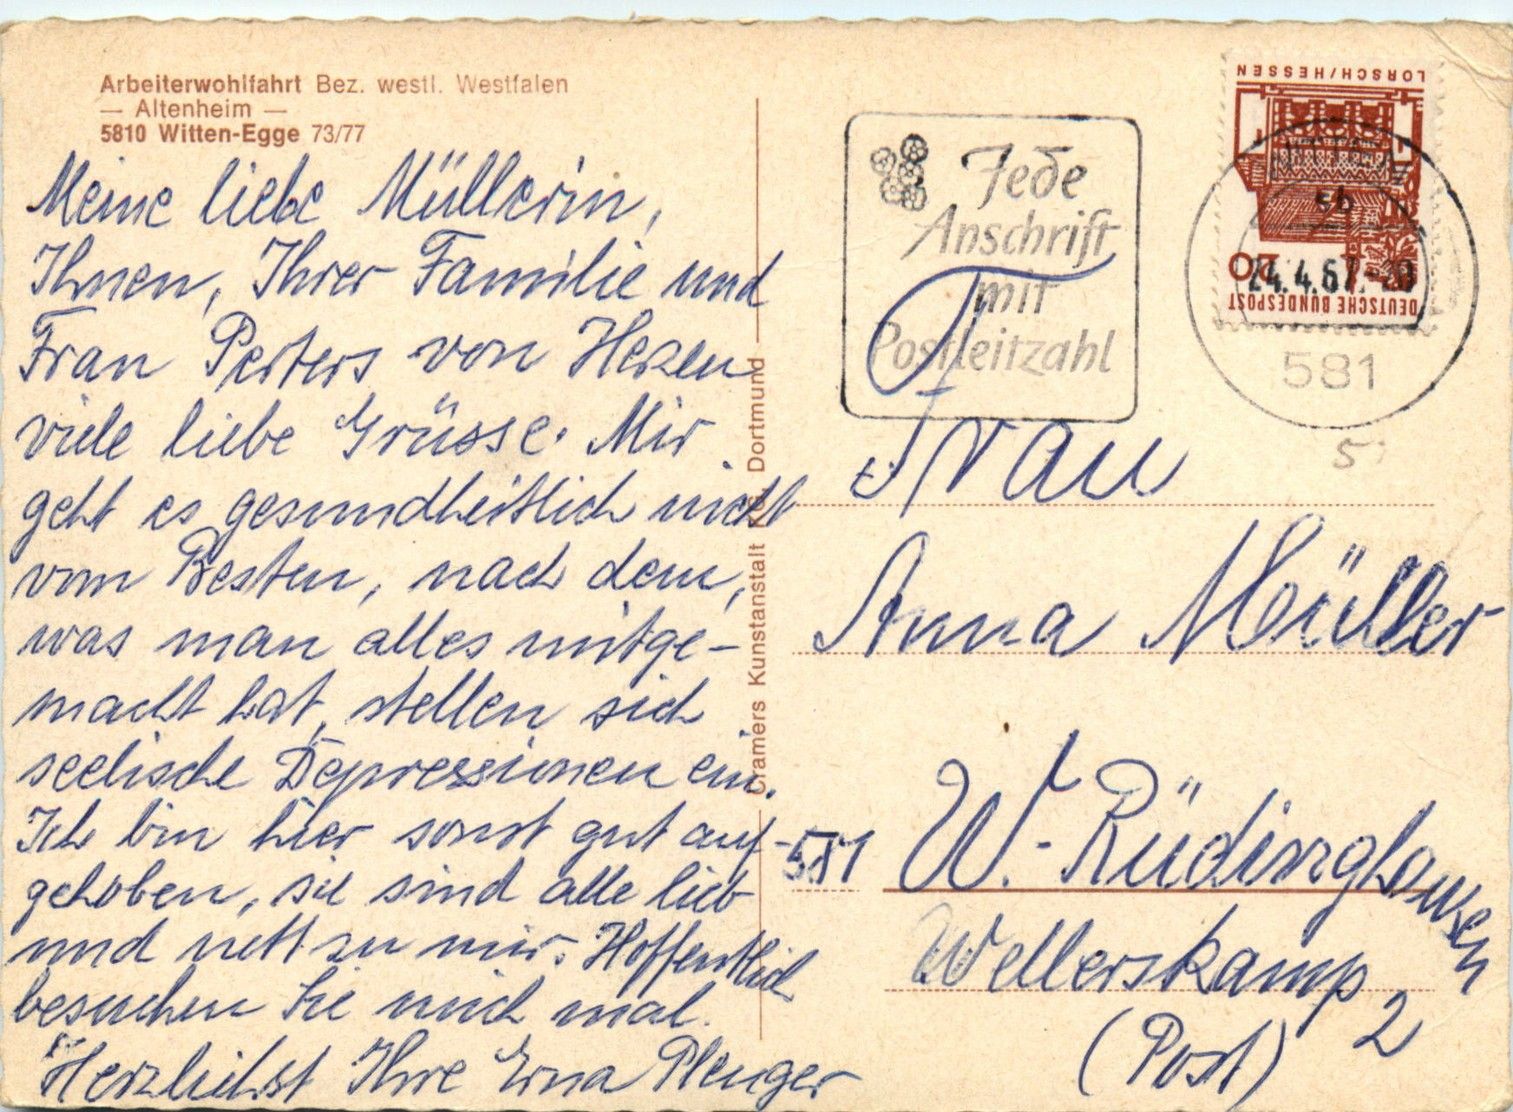 Arbeiterwohlfahrt Bez. westl. Westfalen
— Altenheim —
5810 Witten-Egge 73/77
Meine liebe Müllerin,
Ihnen, Ihrer Familie und
Frau Perters von Herzen
viele liebe Grüsse. Mir
geht es gesundheitlich nicht
vom Besten, nach dem,
was man alles mitge-
macht hat, stellen sich
seelische Depressionen ein.
Ich bin hier sonst gut auf-
gehoben, sie sind alle lieb
und nett zu mir. Hoffentlich
besuchen Sie mich mal.
Herzlichst Ihre Erna Plenger
Cramers Kunstanstalt KG Dortmund
Jede
Anschrift
mit
Postleitzahl
LORSCH/HESSEN
20
DEUTSCHE BUNDESPOST
WITTEN
sb
24.4.67.-20
581
Frau
Anna Müller
581 W.-Rüdinghausen
Wellerskamp 2
(Post)